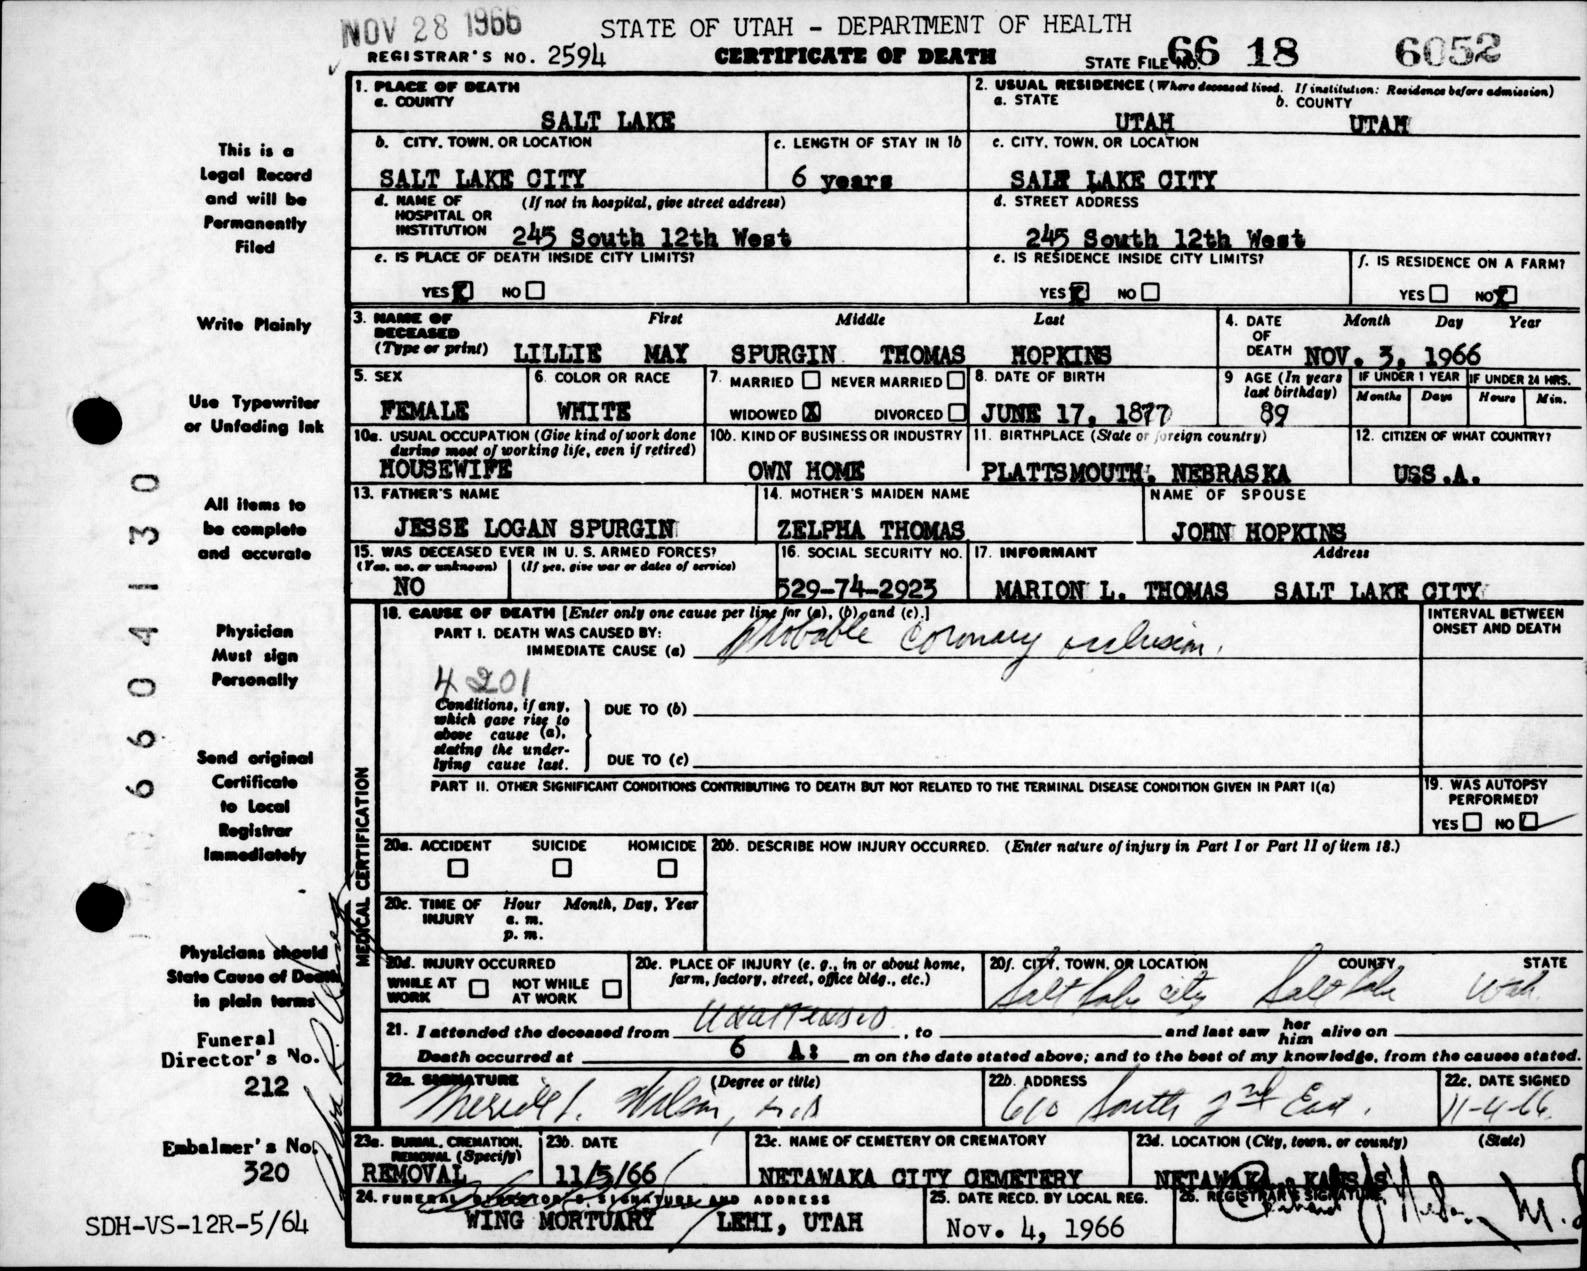 NOV 28 1966
STATE OF UTAH - DEPARTMENT OF HEALTH
REGISTRAR'S NO. 2594
CERTIFICATE OF DEATH
STATE FILE NO. 66 18 6052
1. PLACE OF DEATH
a. COUNTY
SALT LAKE
2. USUAL RESIDENCE (Where deceased lived. If institution: Residence before admission)
a. STATE b. COUNTY
UTAH UTAH
b. CITY, TOWN, OR LOCATION
SALT LAKE CITY
c. LENGTH OF STAY IN 1b
6 years
c. CITY, TOWN, OR LOCATION
SALT LAKE CITY
d. NAME OF HOSPITAL OR INSTITUTION (If not in hospital, give street address)
245 South 12th West
d. STREET ADDRESS
245 South 12th West
e. IS PLACE OF DEATH INSIDE CITY LIMITS?
YES X NO
e. IS RESIDENCE INSIDE CITY LIMITS?
YES X NO
f. IS RESIDENCE ON A FARM?
YES NO X
3. NAME OF DECEASED (Type or print)
First Middle Last
LILLIE MAY SPURGIN THOMAS HOPKINS
4. DATE OF DEATH Month Day Year
NOV. 3, 1966
5. SEX
FEMALE
6. COLOR OR RACE
WHITE
7. MARRIED NEVER MARRIED
WIDOWED X DIVORCED
8. DATE OF BIRTH
JUNE 17, 1877
9 AGE (In years last birthday)
89
IF UNDER 1 YEAR
Months Days
IF UNDER 24 HRS.
Hours Min.
10a. USUAL OCCUPATION (Give kind of work done during most of working life, even if retired)
HOUSEWIFE
10b. KIND OF BUSINESS OR INDUSTRY
OWN HOME
11. BIRTHPLACE (State or foreign country)
PLATTSMOUTH, NEBRASKA
12. CITIZEN OF WHAT COUNTRY?
USS.A.
13. FATHER'S NAME
JESSE LOGAN SPURGIN
14. MOTHER'S MAIDEN NAME
ZELPHA THOMAS
NAME OF SPOUSE
JOHN HOPKINS
15. WAS DECEASED EVER IN U. S. ARMED FORCES?
(Yes, no, or unknown) (If yes, give war or dates of service)
NO
16. SOCIAL SECURITY NO.
529-74-2923
17. INFORMANT Address
MARION L. THOMAS SALT LAKE CITY
MEDICAL CERTIFICATION
18. CAUSE OF DEATH [Enter only one cause per line for (a), (b), and (c).]
PART I. DEATH WAS CAUSED BY:
IMMEDIATE CAUSE (a) Probable Coronary occlusion.
INTERVAL BETWEEN ONSET AND DEATH
4201
Conditions, if any, which gave rise to above cause (a), stating the underlying cause last.
DUE TO (b)
DUE TO (c)
PART II. OTHER SIGNIFICANT CONDITIONS CONTRIBUTING TO DEATH BUT NOT RELATED TO THE TERMINAL DISEASE CONDITION GIVEN IN PART I(a)
19. WAS AUTOPSY PERFORMED?
YES NO
20a. ACCIDENT SUICIDE HOMICIDE
20b. DESCRIBE HOW INJURY OCCURRED. (Enter nature of injury in Part I or Part II of item 18.)
20c. TIME OF INJURY Hour Month, Day, Year
a. m.
p. m.
20d. INJURY OCCURRED
WHILE AT WORK NOT WHILE AT WORK
20e. PLACE OF INJURY (e. g., in or about home, farm, factory, street, office bldg., etc.)
20f. CITY, TOWN, OR LOCATION COUNTY STATE
Salt Lake City Salt Lake Utah
21. I attended the deceased from Unattended, to and last saw her him alive on
Death occurred at 6 A: m on the date stated above; and to the best of my knowledge, from the causes stated.
22a. SIGNATURE (Degree or title)
22b. ADDRESS
610 South 2nd East.
22c. DATE SIGNED
11-4-66
23a. BURIAL, CREMATION, REMOVAL (Specify)
REMOVAL
23b. DATE
11/5/66
23c. NAME OF CEMETERY OR CREMATORY
NETAWAKA CITY CEMETERY
23d. LOCATION (City, town, or county) (State)
NETAWAKA, KANSAS
24. FUNERAL DIRECTOR'S SIGNATURE AND ADDRESS
WING MORTUARY LEHI, UTAH
25. DATE RECD. BY LOCAL REG.
Nov. 4, 1966
26. REGISTRAR'S SIGNATURE
This is a
Legal Record
and will be
Permanently
Filed
Write Plainly
Use Typewriter
or Unfading Ink
All items to
be complete
and accurate
Physician
Must sign
Personally
Send original
Certificate
to Local
Registrar
Immediately
Physicians should
State Cause of Death
in plain terms
Funeral
Director's No.
212
Embalmer's No.
320
SDH-VS-12R-5/64
6604130